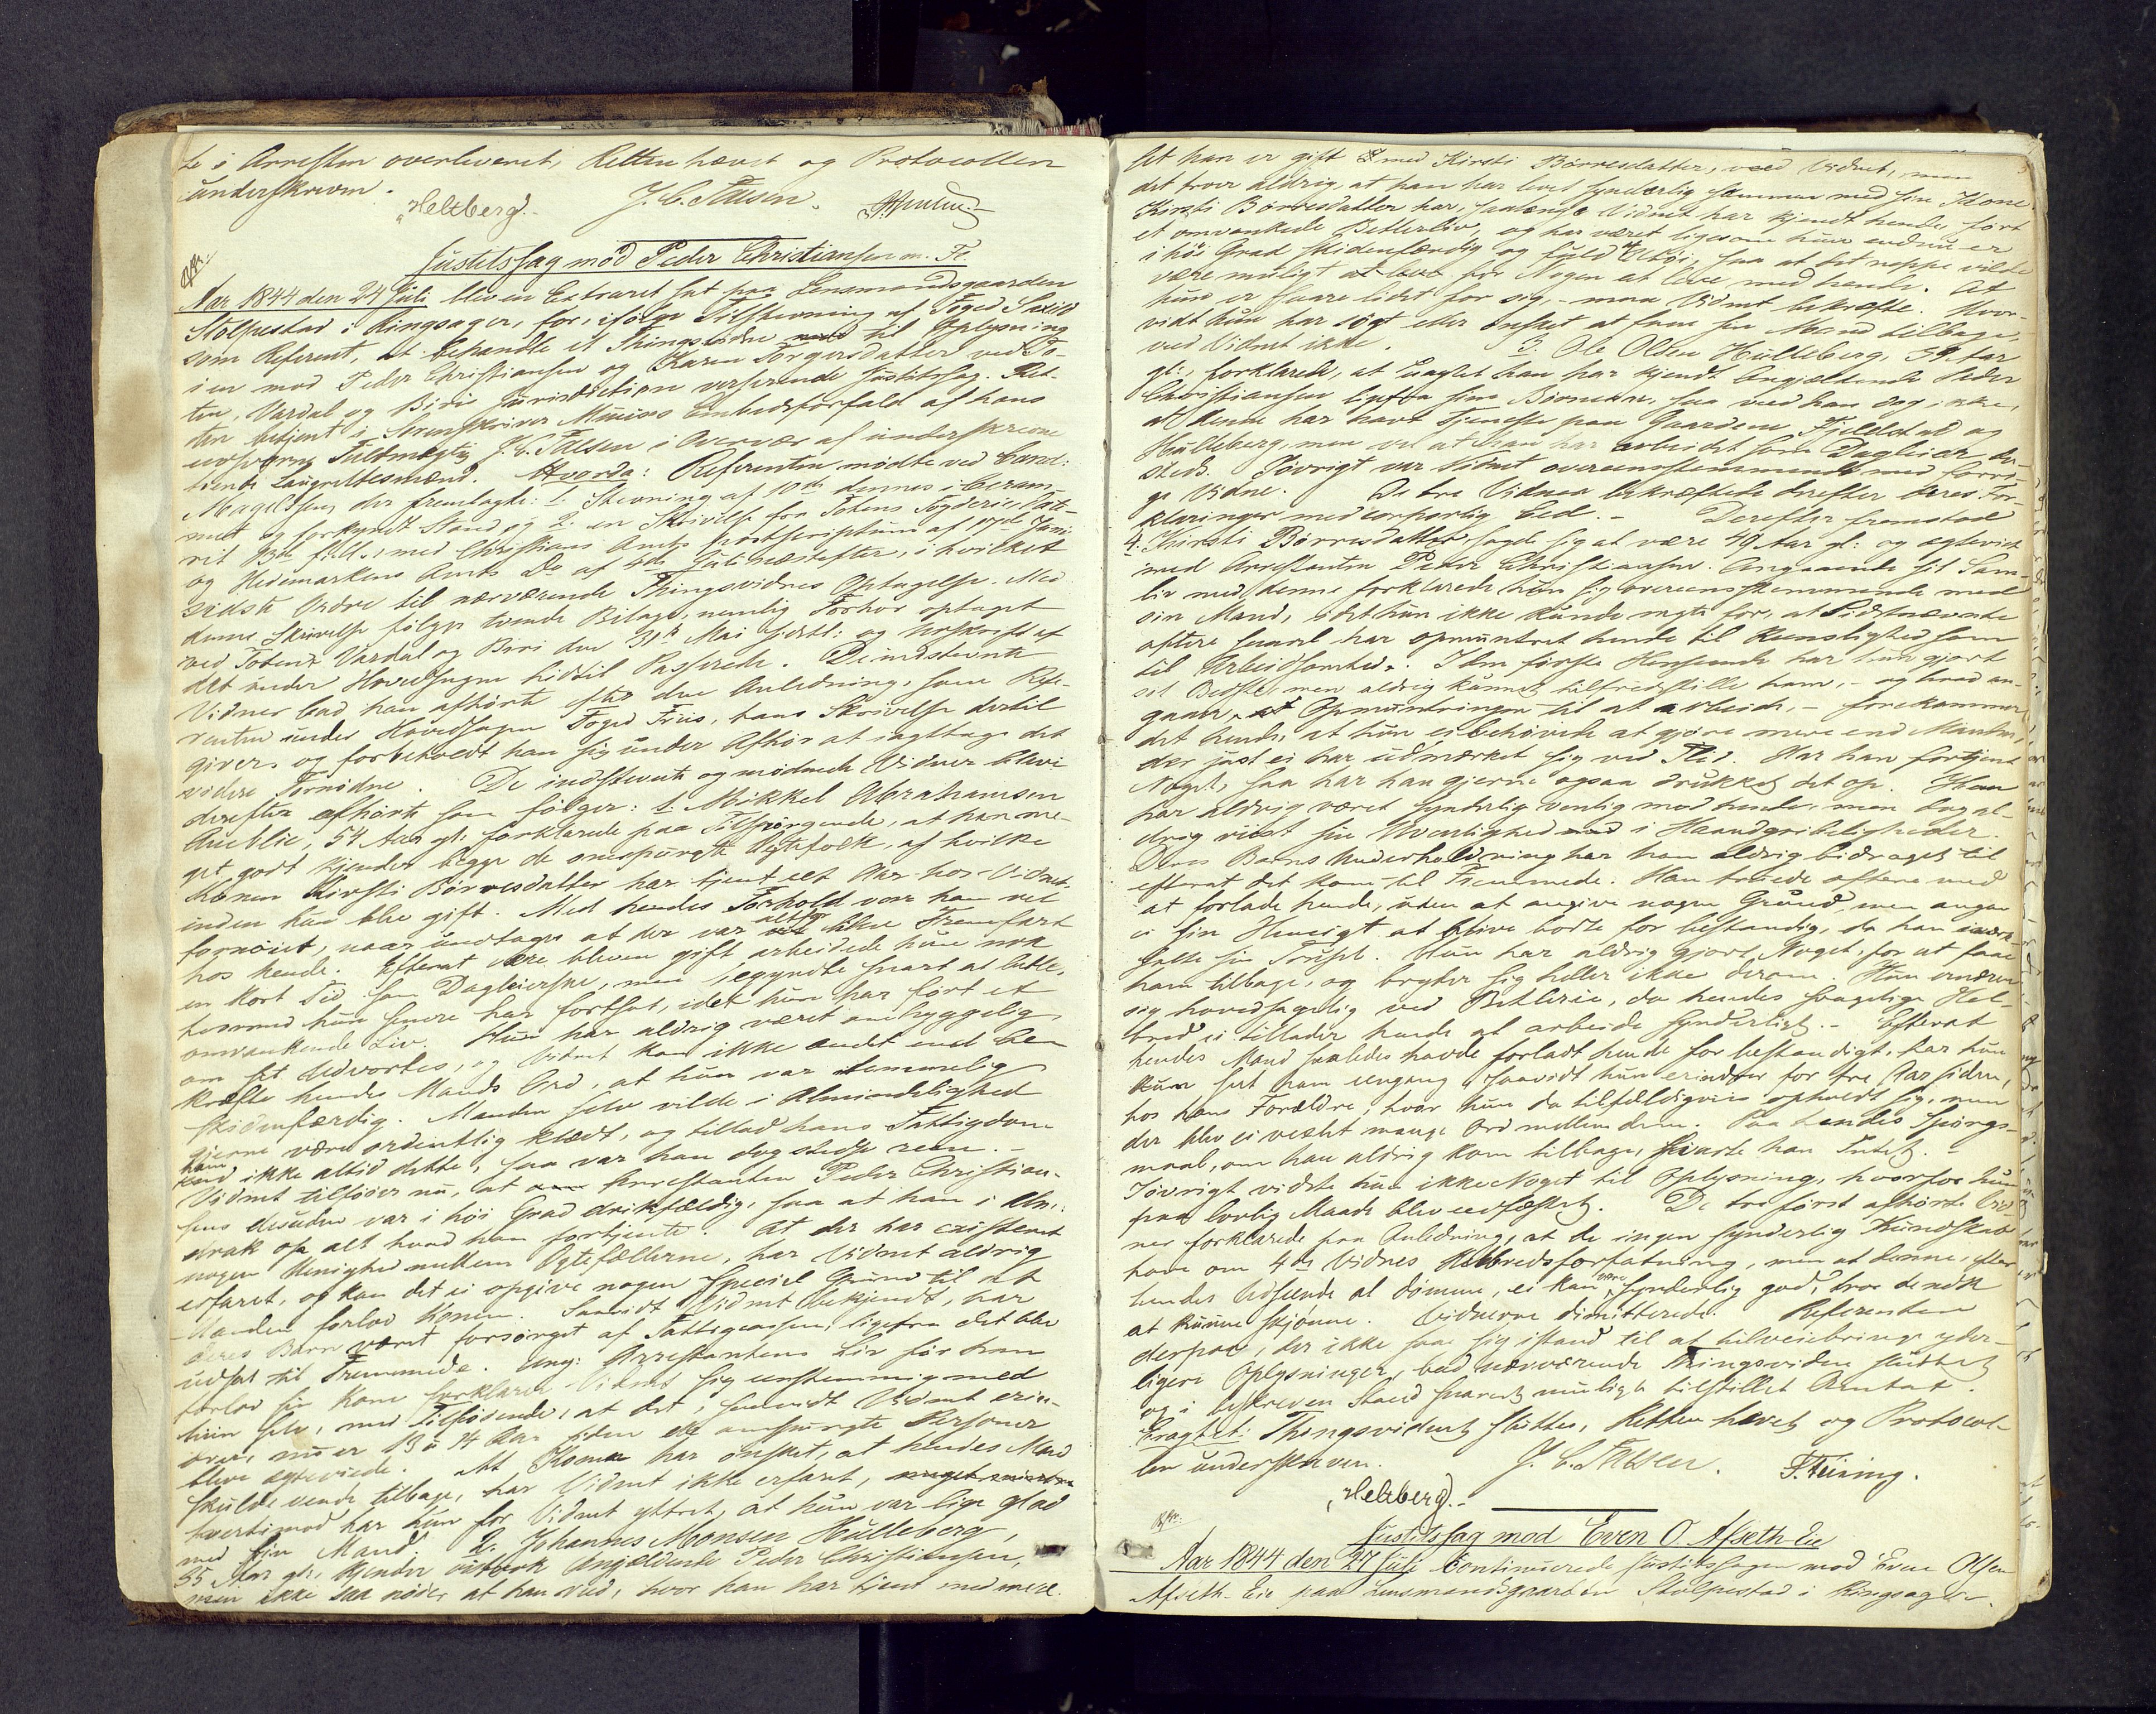 te i Arresten overleveret, Retten hævet og Protocollen
underskreven.
Heltberg. J. C. Falsen.
Justitssag mod Peder Christiansen m. Fl.
Aar 1844 den 24 Juli blev en Extraret sat paa Lensmandsgaarden
Stolpestad i Ringsager, for, ifølge Tilstevning af Foged
som Referent, at behandle et Thingsvidne til Oplysning
i en mod Peder Christiansen og Karen Torgersdatter ved To-
ten, Vardal og Biri Jurisdiction verserende Justitssag. Ret-
ten betjent i Sorenskriver Embedsforfald af hans
edsvorne Fuldmægtig J. C. Falsen i Overvær af underskrevne
tvende Laugrettesmænd. Hvorda: Referenten mødte ved Cand:
Magelssen, der fremlagte: 1. Stevning af 10de dennes i beram-
met og forkyndt Stand og 2. en Skrivelse fra Totens Fogderie, date-
ret f. M., med Christians Amts Postscriptum af 17de Juni
og Hedemarkens Amts Do af 4de Juli næstefter, i hvilket
sidste Ordre til nærværende Thingsvidnes Optagelse. Med
denne Skrivelse følger tvende Bilage, nemlig Forhør optaget
ved Toten, Vardal og Biri den 31te Mai sidstl: og Udskrift af
det under Hovedsagen hidtil Passerede. De indstevnte
Vidner bad han afhørte efter den Anledning, som Refe-
renten under Hovedsagen Foged Friis, hans Skrivelse dertil
giver, og forbeholdt han sig under Afhør at iagttage det
videre Fornødne. De indstevnte og mødende Vidner bleve
derefter afhørte som følger: 1. Mikkel Abrahamsen
Aueblie, 54 Aar gl: forklarede paa Tilspørgende, at han me-
get godt kjender begge de omspurgte Ægtefolk, af hvilke
Konen Kirsti Børresdatter har tjent eet Aar hos Vidnet
inden hun blev gift. Med hendes Forhold var han vel
fornøiet, naar undtages at der var altfor liden Fremfart
hos hende. Efterat være bleven gift arbeidede hun nok
en kort Tid som Dagleierske, men begyndte snart at betle,
hvormed hun senere har fortsat, idet hun har ført et
omvankende Liv. Hun har aldrig været omhyggelig
om sit Udvortes, og Vidnet kan ikke andet end be-
kræfte hendes Mands Ord, at hun var temmelig
skidenfærdig. Manden selv vilde i Almindelighed
gjerne være ordentlig klædt, og tillod hans Fattigdom
ham ikke altid dette, saa var han dog stedse reen. -
Vidnet tilføier nu, at Arrestanten Peder Christian-
sens desuden var i høi Grad drikfældig, saa at han i Alm:
drak op alt hvad han fortjente. At der har existeret
nogen Uenighed mellem Ægtefællerne, har Vidnet aldrig
erfaret, og kan det ei opgive nogen speciel Grund til at
Manden forlod Konen. Saavidt Vidnet bekjendt, har
deres Barn været forsørget af Fattigcassen, ligefra det blev
udsat til Fremmede. Ang: Arrestantens Liv før han
forlod sin Kone forklarer Vidnet sig eenstemmig med
hiin selv, med Tilføiende, at det, saavidt Vidnet erin-
drer, nu er 13 à 14 Aar siden de omspurgte Personer
bleve ægteviede. At Konen har ønsket, at hendes Mand
skulde vende tilbage, har Vidnet ikke erfaret,
hvertimod har hun for Vidnet yttret, at hun var lige glad
med sin Mand. 2. Johannes Monsen Hulleberg,
55 Aar gl:, kjender Angjældende Peder Christiansen,
men ikke saa nøder, at han Ved, hvor han har tjent med mere.
At han er gift med Kirsti Børresdatter, veed Vidnet, men
det troer aldrig, at han har levet synderlig sammen med sin Kone.
Kirsti Børresdatter har, saalænge Vidnet har kjendt hende, ført
et omvankede Betlerliv, og har været ligesom hun endnu er
i høi Grad skidenfærdig og fuld af Utøi, saa at det neppe vilde
være muligt for Nogen at leve med hende. At
hun er svare lidet for sig, - maa Vidnet bekræfte. Hvor-
vidt hun har søgt eller ønsket at faae sin Mand tilbage,
ved Vidnet ikke. 3. Ole Olsen Hulleberg, 39 Aar
gl:, forklarede, at uagtet han har kjendt Angjældende Peder
Christiansen ligefra sin Barndom, saa ved han dog ikke,
at denne har havt Tjeneste paa Gaardene Fjeldstad og
Hulleberg, men vel at han har arbeidet som Dagleier der-
steds. Iøvrigt var Vidnet overeensstemmende med forri-
ge Vidne. De tre Vidner bekræftede derefter deres For-
klaringer med corporlig Eed. - Derefter fremstod
4. Kirsti Børresdatter sagde sig at være 49 Aar gl: og ægteviet
med Arrestanten Peder Christiansen. Angaaende sit Sam-
liv med denne forklarede hun sig overeensstemmende med
sin Mand, idet hun ikke kunde negte for, at Sidstnævnte
oftere saavel har opmuntret hende til Reenslighed som
til Arbeidsomhed. I den første Henseende har hun gjort
sit Bedste, men aldrig kunnet tilfredsstille ham, - og hvad an-
gaaer Opmuntringen til at arbeide, - forekommer
det hende, at hun ei behøvede at gjøre mere end Manden,
der just ei har udmærket sig ved Flid. Har han fortjent
Noget, saa har han gjerne ogsaa drukket det op. Han
har aldrig været synderlig venlig mod hende, men dog al-
drig viist sin Uvenlighed i Haandgribeligheder.
Deres Barns Underholdning har han aldrig bidraget til
efterat det kom til Fremmede. Han truede oftere med
at forlade hende, uden at angive nogen Grund, men angav
ei sin Hensigt at blive borte for bestandig, da han iværk-
satte sin Trusel. Hun har aldrig gjort Noget, for at faae
ham tilbage, og bryder sig heller ikke derom. Hun ernærer
sig hovedsagelig ved Betlerie, da hendes svagelige Hel-
bred ei tillader hende at arbeide synderligt. - Efterat
hendes Mand saaledes havde forladt hende for bestandigt, har hun
kun seet ham eengang, saavidt hun erindrer for tre Aar siden,
hos hans Forældre, hvor hun da tilfældigviis opholdt sig, men
der blev ei vexlet mange Ord mellem dem. Paa hendes Spørgs-
maal, om han aldrig kom tilbage, svarte han Intet. -
Iøvrigt vidste hun ikke Noget til Oplysning, hvorfor hun
paa lovlig Maade blev eedfæstet. De tre først afhørte Vid-
ner forklarede paa Anledning, at de ingen synderlig Kundskab
have om 4de Vidnes Helbredsforfatning, men at denne, efter
hendes Udseende at dømme, ei kan være synderlig god, troe de nok
at kunne skjønne. Vidnerne dimitterede. Referenten
derpaa, der ikke saae sig istand til at tilveiebringe yder-
ligere Oplysninger, bad nærværende Thingsvidne sluttet
og i beskreven Stand snarest muligt tilstillet Amtet.
Eragtet: Thingsvidnet sluttes, Retten hævet og Protocol-
len underskreven. J. C. Falsen.
Heltberg.
Justitssag mod Even O. Afseth-Eie
Aar 1844 den 27 Juli continuerede Justitssagen mod Even Olsen
Afseth-Eie paa Lensmandsgaarden Stolpestad i Ringsager.